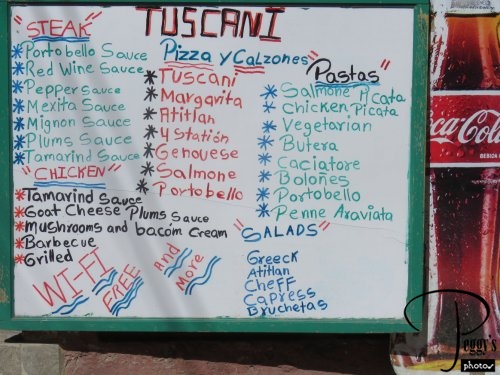 TUSCANI
"STEAK"
Portobello Sauce
Red Wine Sauce
Pepper Sauce
Mexita Sauce
Mignon Sauce
Plums Sauce
Tamarind Sauce
"CHICKEN"
Tamarind Sauce
Goat Cheese Plums Sauce
Mushrooms and bacom Cream
Barbecue
Grilled
Pizza y Calzones"
Tuscani
Margarita
Atitlan
4 Statión
Genovese
Salmone
Portobello
"Pastas"
Salmone Picata
Chicken Picata
Vegetarian
Butera
Caciatore
Boloñes
Portobello
Penne Araviata
"SALADS"
Greeck
Atitlan
Cheff
Capress
Bruchetas
WI-FI
FREE
And
More
Coca-Cola
Peggy's
photos